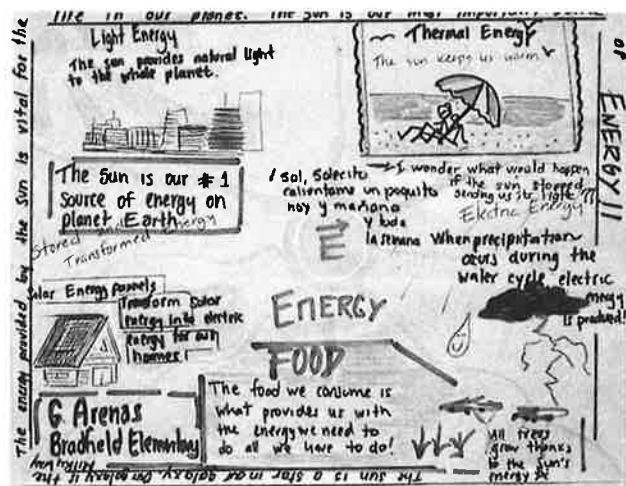 life in our planet. The sun is our most important source
of
ENERGY!!
The energy provided by the sun is vital for the
Light Energy
The sun provides natural light
to the whole planet.
Thermal Energy
The sun keeps us warm
The Sun is our #1
source of energy on
planet Earth
Stored and Energy
Transformed
Sol, Solecito
calientame un poquito
hoy y mañana
y toda
la semana
I wonder what would happen
if the sun stopped
sending us its light ???
Electric Energy
When precipitation
occurs during the
water cycle, electric
energy
is produced!
E
ENERGY
Solar Energy pannels
Transform Solar
energy into electric
energy for our
homes!
FOOD
The food we consume is
what provides us with
the energy we need to
do all we have to do!
G. Arenas
Bradfield Elementary
All trees
grow thanks
to the sun's
energy
The sun is a star in our galaxy. Our galaxy is the
Milky Way